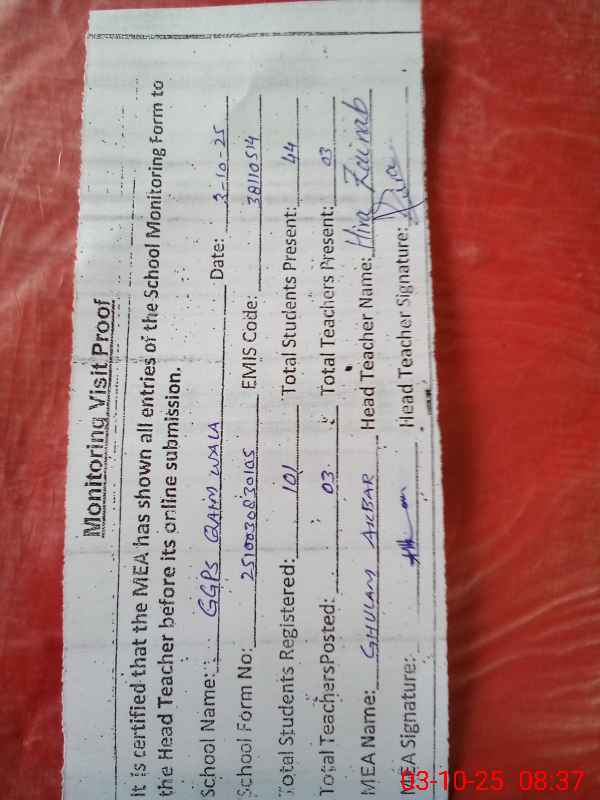 Monitoring Visit Proof
It is certified that the MEA has shown all entries of the School Monitoring Form to
the Head Teacher before its online submission.
School Name: GGPS QAIM WALA Date: 3-10-25
School Form No: 2510030830105 EMIS Code: 38110514
Total Students Registered: 101 Total Students Present: 44
Total TeachersPosted: 03 Total Teachers Present: 03
MEA Name: GHULAM AKBAR Head Teacher Name: Hira Zainab
MEA Signature: Head Teacher Signature:
03-10-25 08:37